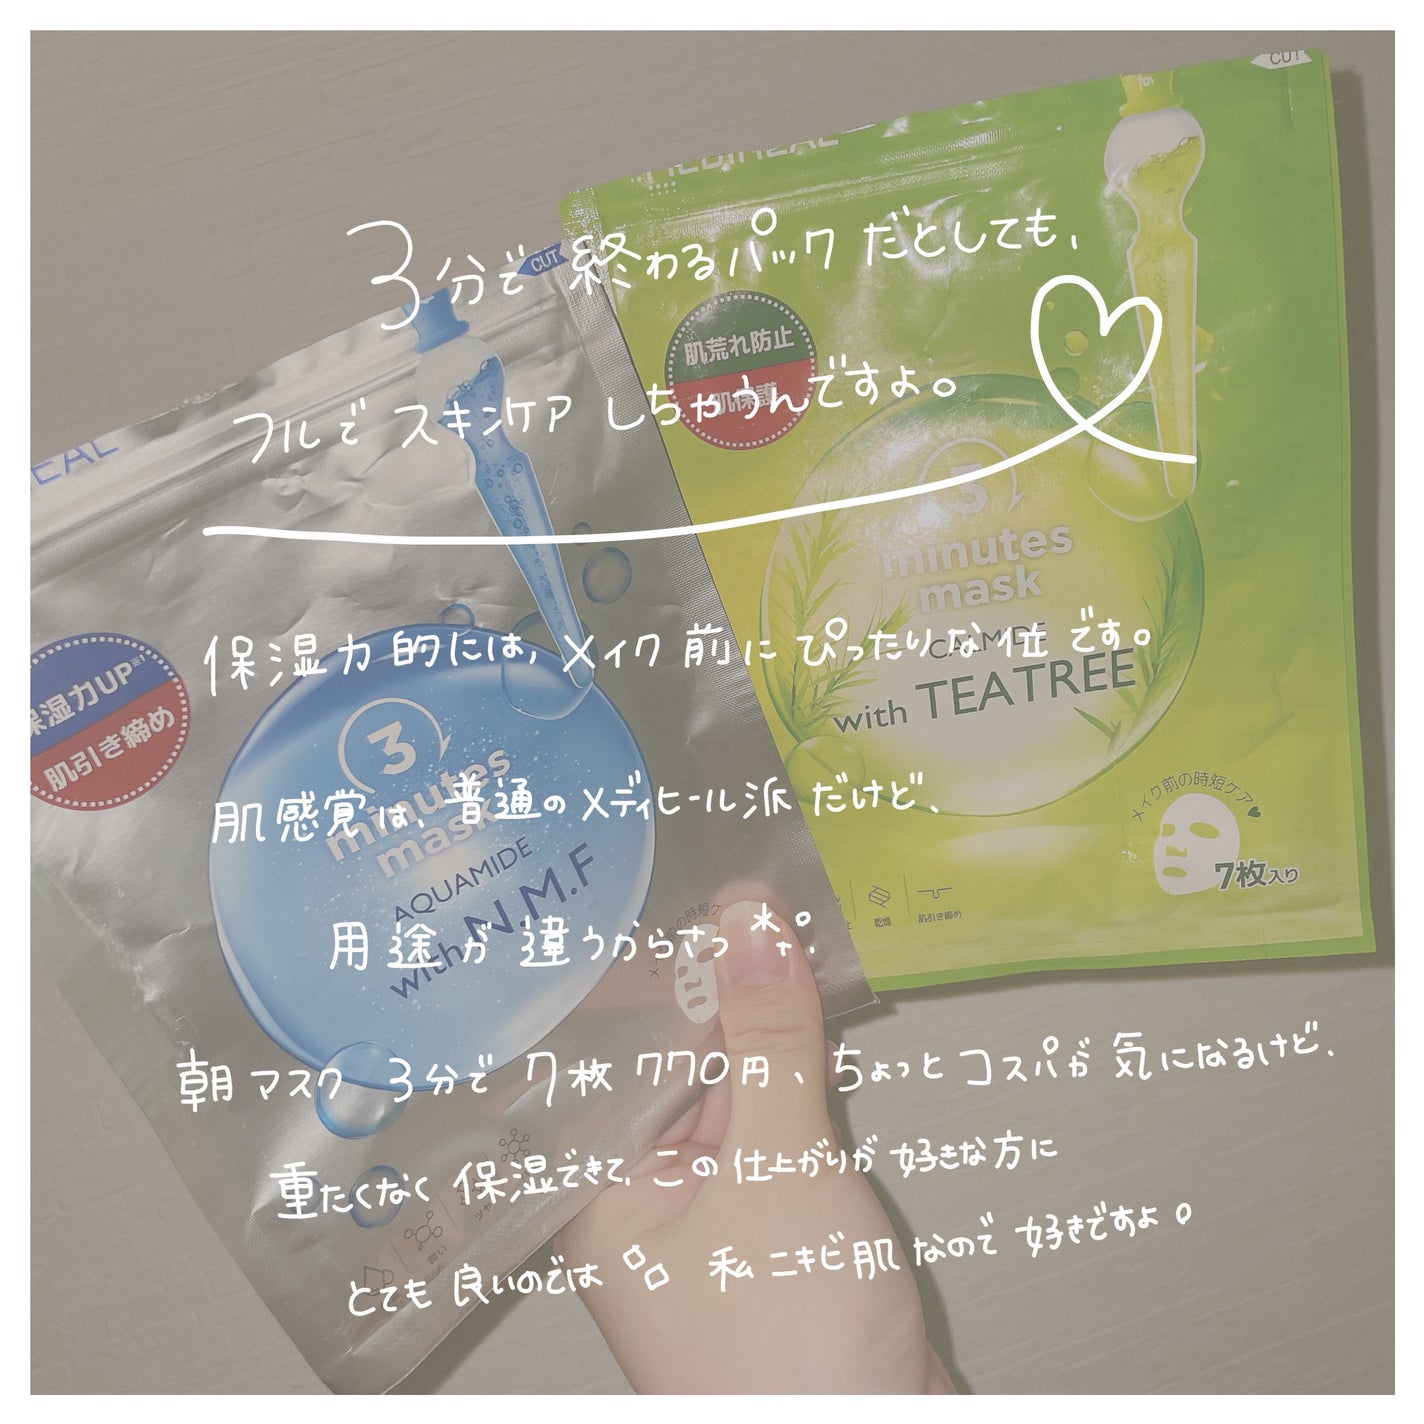 CUT
MEDIHEAL
3分で終わるパックだとしても、
CUT
肌荒れ防止
肌保護
フルでスキンケアしちゃうんですよ。
EAL
3
minutes
mask
CALMIDE
with TEATREE
保湿力的には、メイク前にぴったりな位です。
保湿力UP※1
肌引き締め
3
minutes
mask
AQUAMIDE
with N.M.F
肌感覚は、普通のメディヒール派だけど、
メイク前の時短ケア♥
7枚入り
乾燥
肌引き締め
用途が違うからさっ
朝マスク 3分で 7枚 770円、ちょっとコスパが気になるけど、
重たくなく保湿できて、この仕上がりが好きな方に
とても良いのでは 私ニキビ肌なので好きですよ。